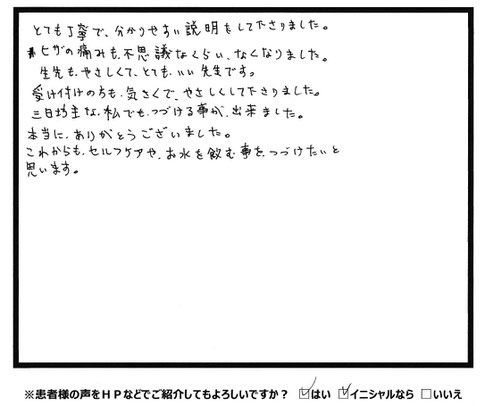 とても丁寧で、分かりやすい説明をして下さりました。
ヒザの痛みも、不思議なくらい、なくなりました。
先生も、やさしくて、とても、いい先生です。
受け付けの方も、気さくで、やさしくして下さりました。
三日坊主な、私でも、つづける事が、出来ました。
本当に、ありがとうございました。
これからも、セルフケアや、お水を飲む事を、つづけたいと
思います。
※患者様の声をHPなどでご紹介してもよろしいですか? ☑はい ☑イニシャルなら □いいえ